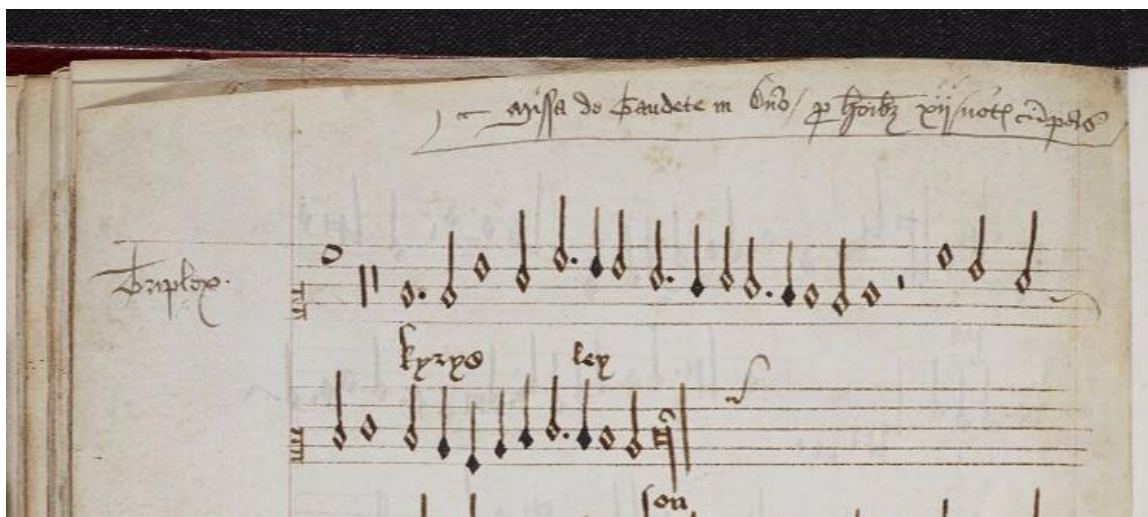 Missa de Gaudete in dño / p hoibz xij / not
Triplex.
kyrys ley
son